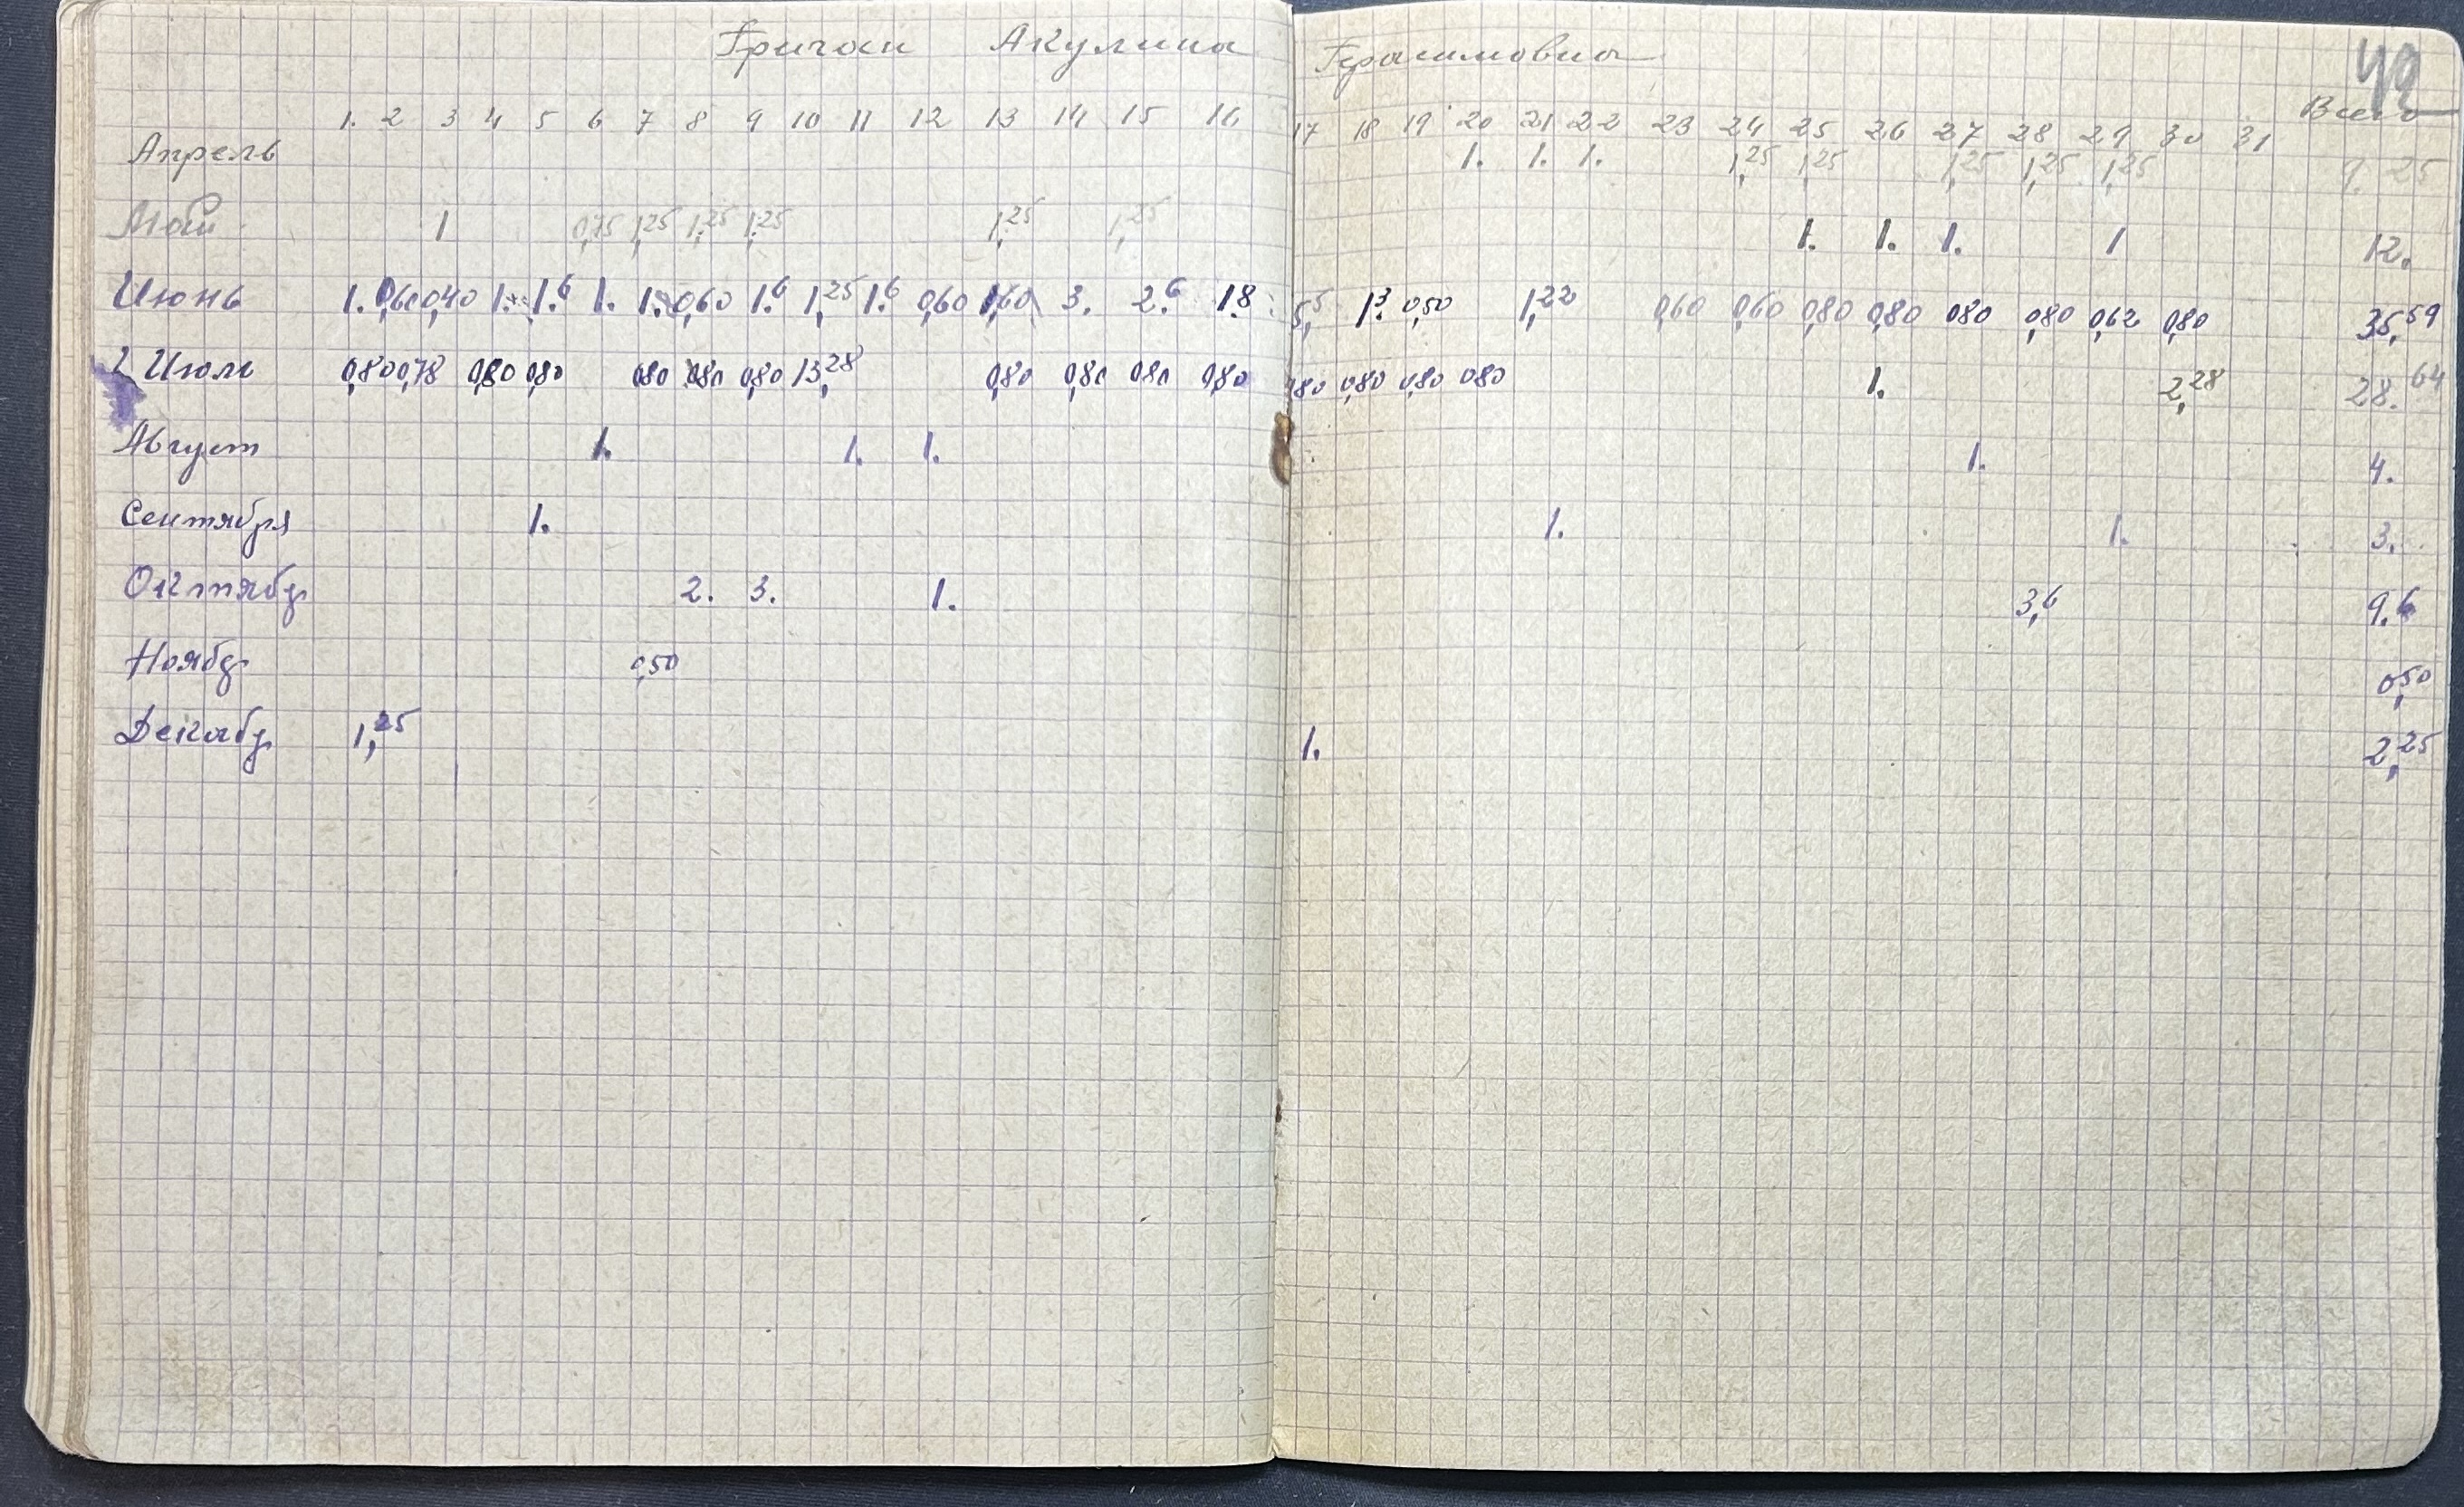 Гричаси Акулина Герасимовна 49
1. 2 3 4 5 6 7 8 9 10 11 12 13 14 15 16 17 18 19 20 21 22 23 24 25 26 27 28 29 30 31 Всего
Апрель 1. 1. 1. 1,25 1,25 1,25 1,25 1,25 9.25
Май 1 0,75 1,25 1,25 1,25 1,25 1,25 1. 1. 1. 1 12.
Июнь 1. 0,60 0,40 1. 1.6 1. 1. 0,60 1.6 1,25 1.6 0,60 1,60 3. 2.6 1.8 5,5 1.3 0,50 1,22 0,60 0,60 0,80 0,80 080 0,80 0,62 0,80 35,59
Июль 0,80 0,78 0,80 0,80 080 080 0,80 13,28 0,80 0,80 080 0,80 0,80 0,80 0,80 080 1. 2,28 28.64
Август 1. 1. 1. 1. 4.
Сентября 1. 1. 1. 3.
Октябр 2. 3. 1. 3,6 9.6
Ноябр 0,50 0,50
Декабр 1,25 1. 2,25